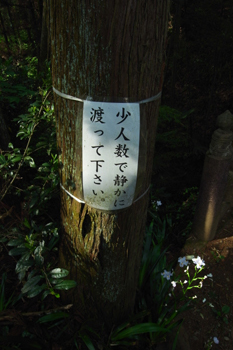 少人数で静かに
渡って下さい